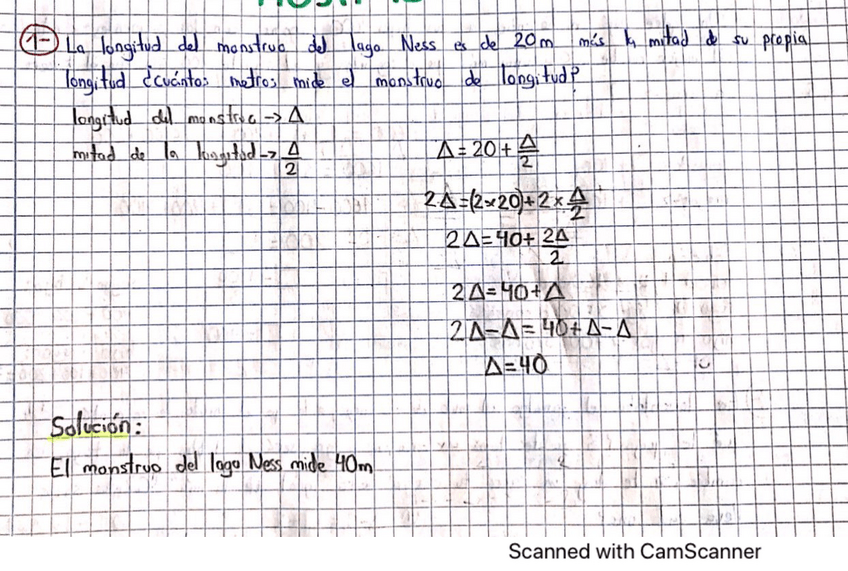 1- La longitud del monstruo del lago Ness es de 20m más la mitad de su propia
longitud ¿cuántos metros mide el monstruo de longitud?
longitud del monstruo -> Δ
mitad de la longitud -> Δ/2
Δ = 20 + Δ/2
2Δ = (2×20) + 2 × Δ/2
2Δ = 40 + 2Δ/2
2Δ = 40 + Δ
2Δ - Δ = 40 + Δ - Δ
Δ = 40
Solución:
El monstruo del lago Ness mide 40m
Scanned with CamScanner